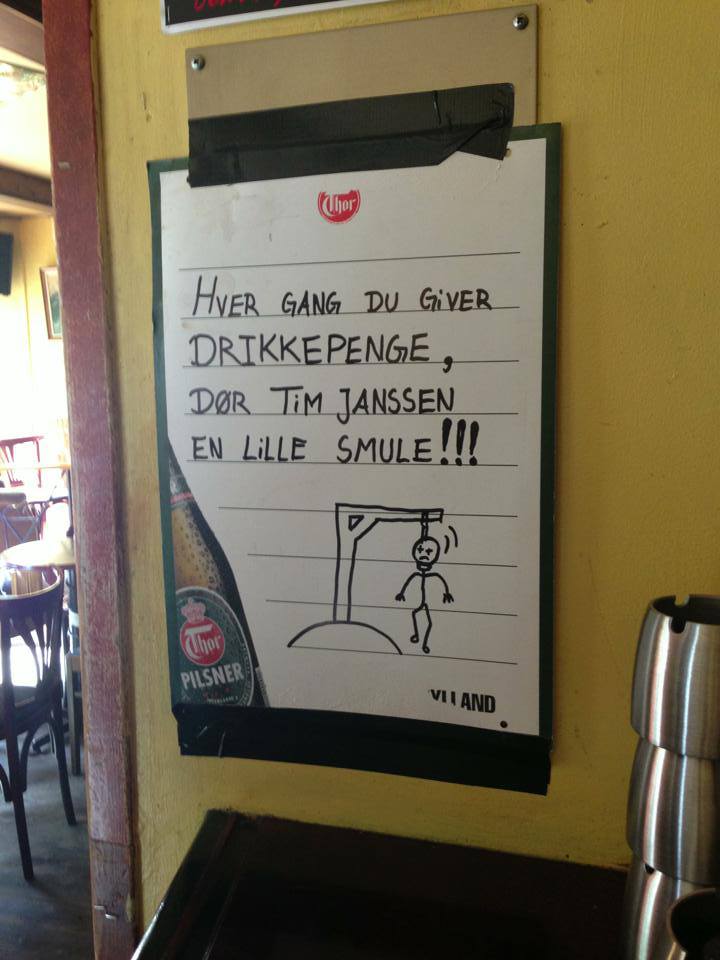 Thor
HVER GANG DU GiVER
DRIKKEPENGE,
DØR TiM JANSSEN
EN LiLLE SMULE!!!
Thor
PILSNER